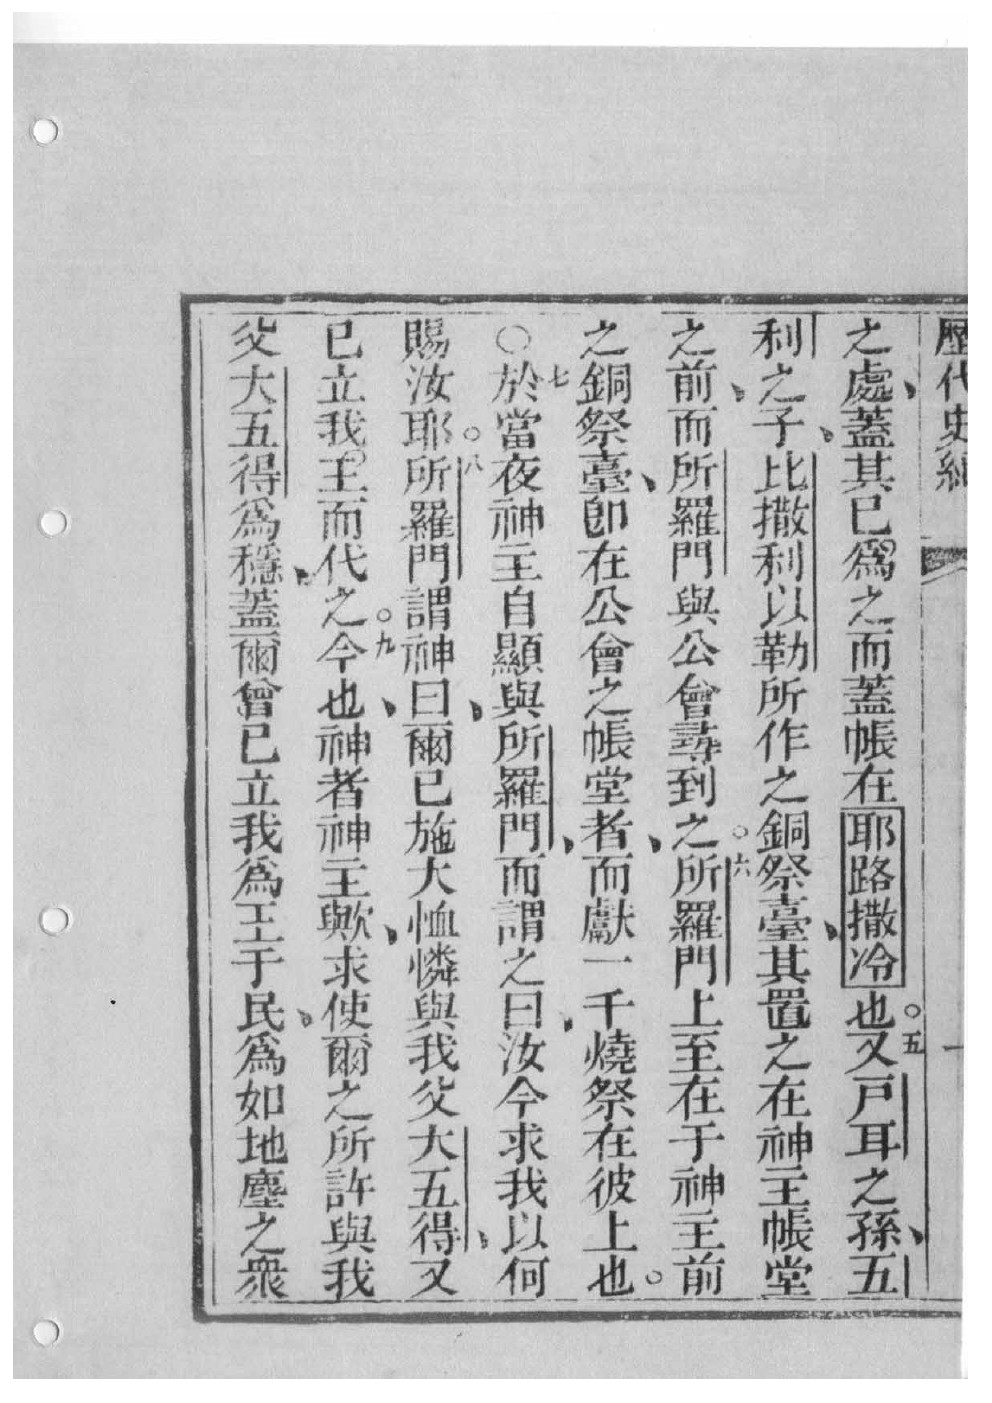 歷代史紀 一
之處蓋其已爲之而蓋帳在耶路撒冷也。五又戸耳之孫、五
利之子、比撒利以勒所作之銅祭臺、其置之在神主帳堂
之前、而所羅門與公會尋到之。六所羅門上至在于神主前
之銅祭臺、卽在公會之帳堂者、而獻一千燒祭在彼上也。
○七於當夜神主自顯與所羅門、而謂之曰、汝今求我以何
賜汝耶。八所羅門謂神曰、爾已施大恤憐與我父大五得、又
已立我王而代之。九今也、神者神主歟、求使爾之所許與我
父大五得爲穩、蓋爾曾已立我爲王于民、爲如地塵之衆